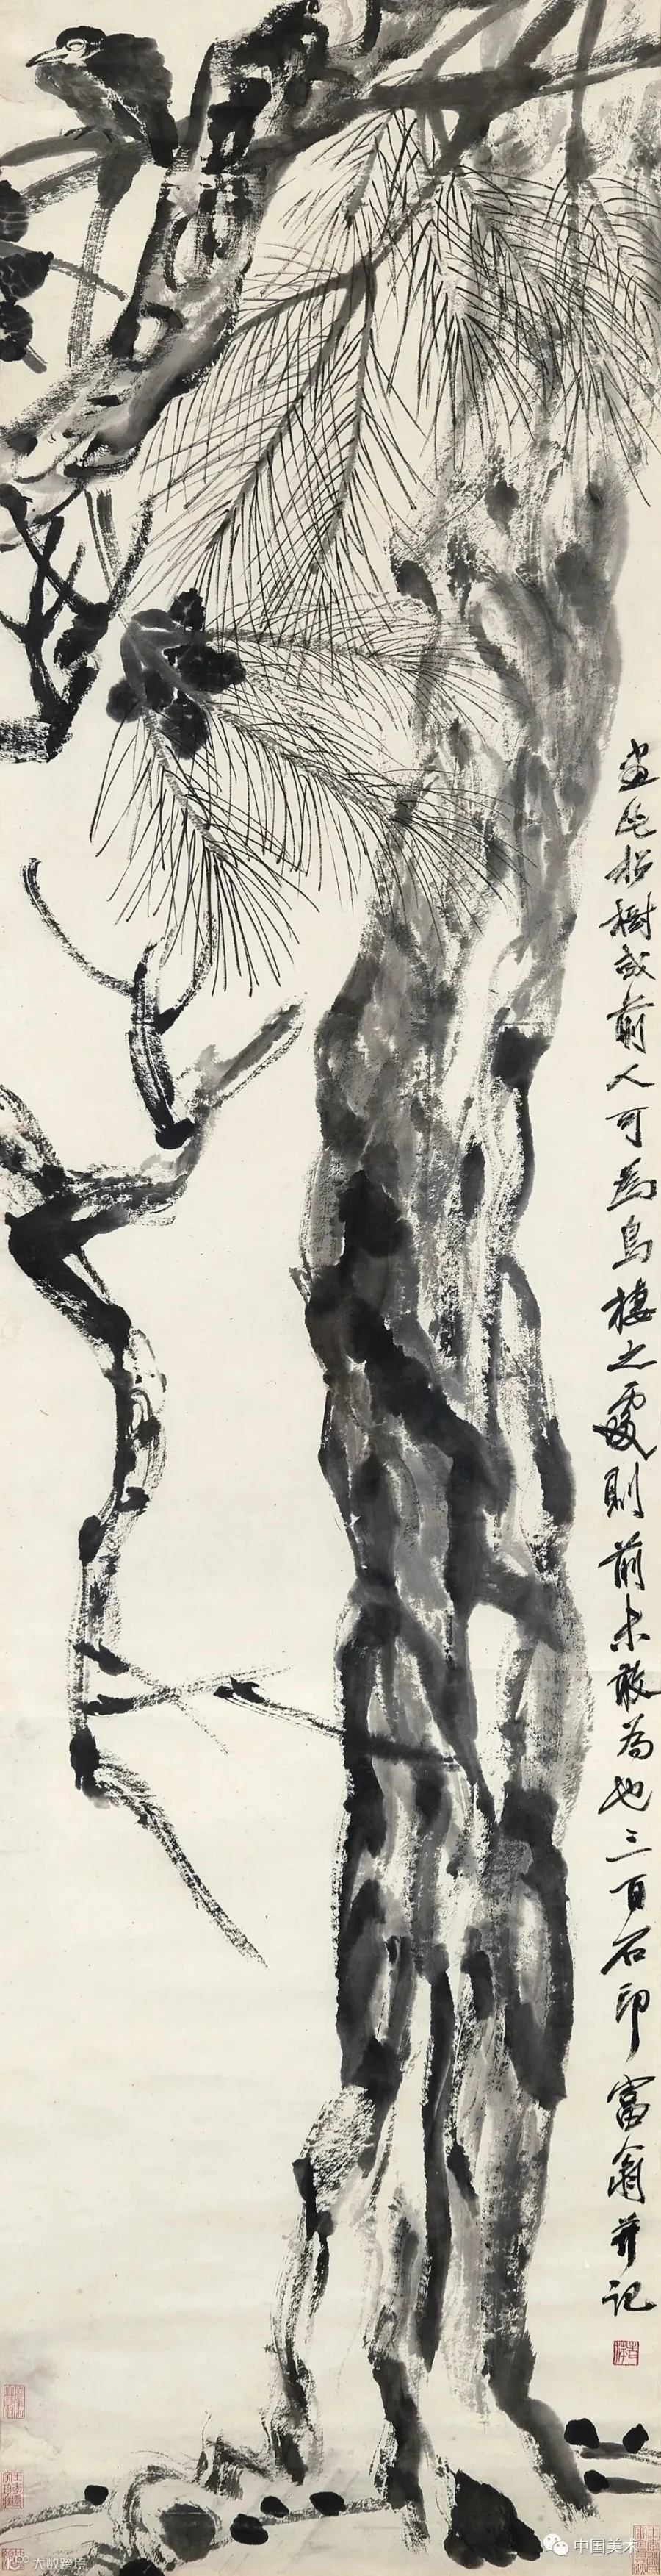 畫此松樹或前人可為鳥棲之處則前未敢為也三百石印富翁并記
中国美术
大数跨境